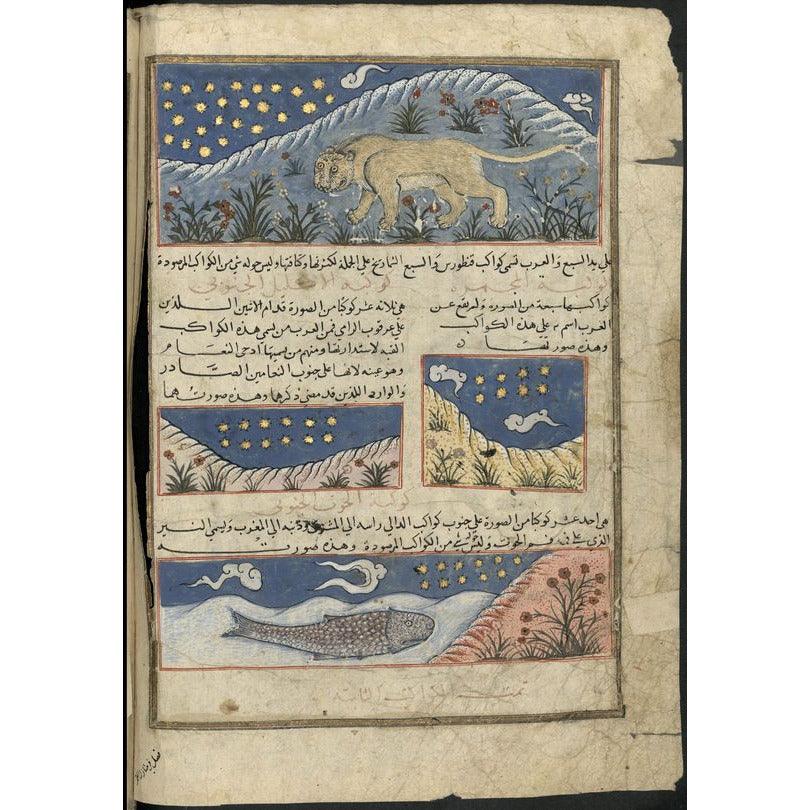 على يد السبع والعرب تسمى كواكب قنطورس والسبع الشماريخ على الجملة لكثرتها وكثافتها وليس حوله شئ من الكواكب المرصودة
كوكبة المجمرة
كواكبها سبعة من الصورة ولم يقع عن
العرب اسم به على هذه الكواكب
وهذه صورتها
كوكبة الاكليل الجنوبي
هي ثلاثة عشر كوكبا من الصورة قدام الاثنين اللذين
على عرقوب الرامي فمن العرب من يسمى هذه الكواكب
القبة لاستدارتها ومنهم من يسميها ادحى النعام
وهو عشه لانها على جنوب النعامين الصادر
والوارد اللذين قد مضى ذكرهما وهذه صورتهما
كوكبة الحوت الجنوبي
هي احد عشر كوكبا من الصورة على جنوب كواكب الدالي راسه الى المشرق وذنبه الى المغرب ويسمى النير
الذي على فم الحوت وليس شئ من الكواكب المرصودة وهذه صورته
تمت الكواكب الثابتة